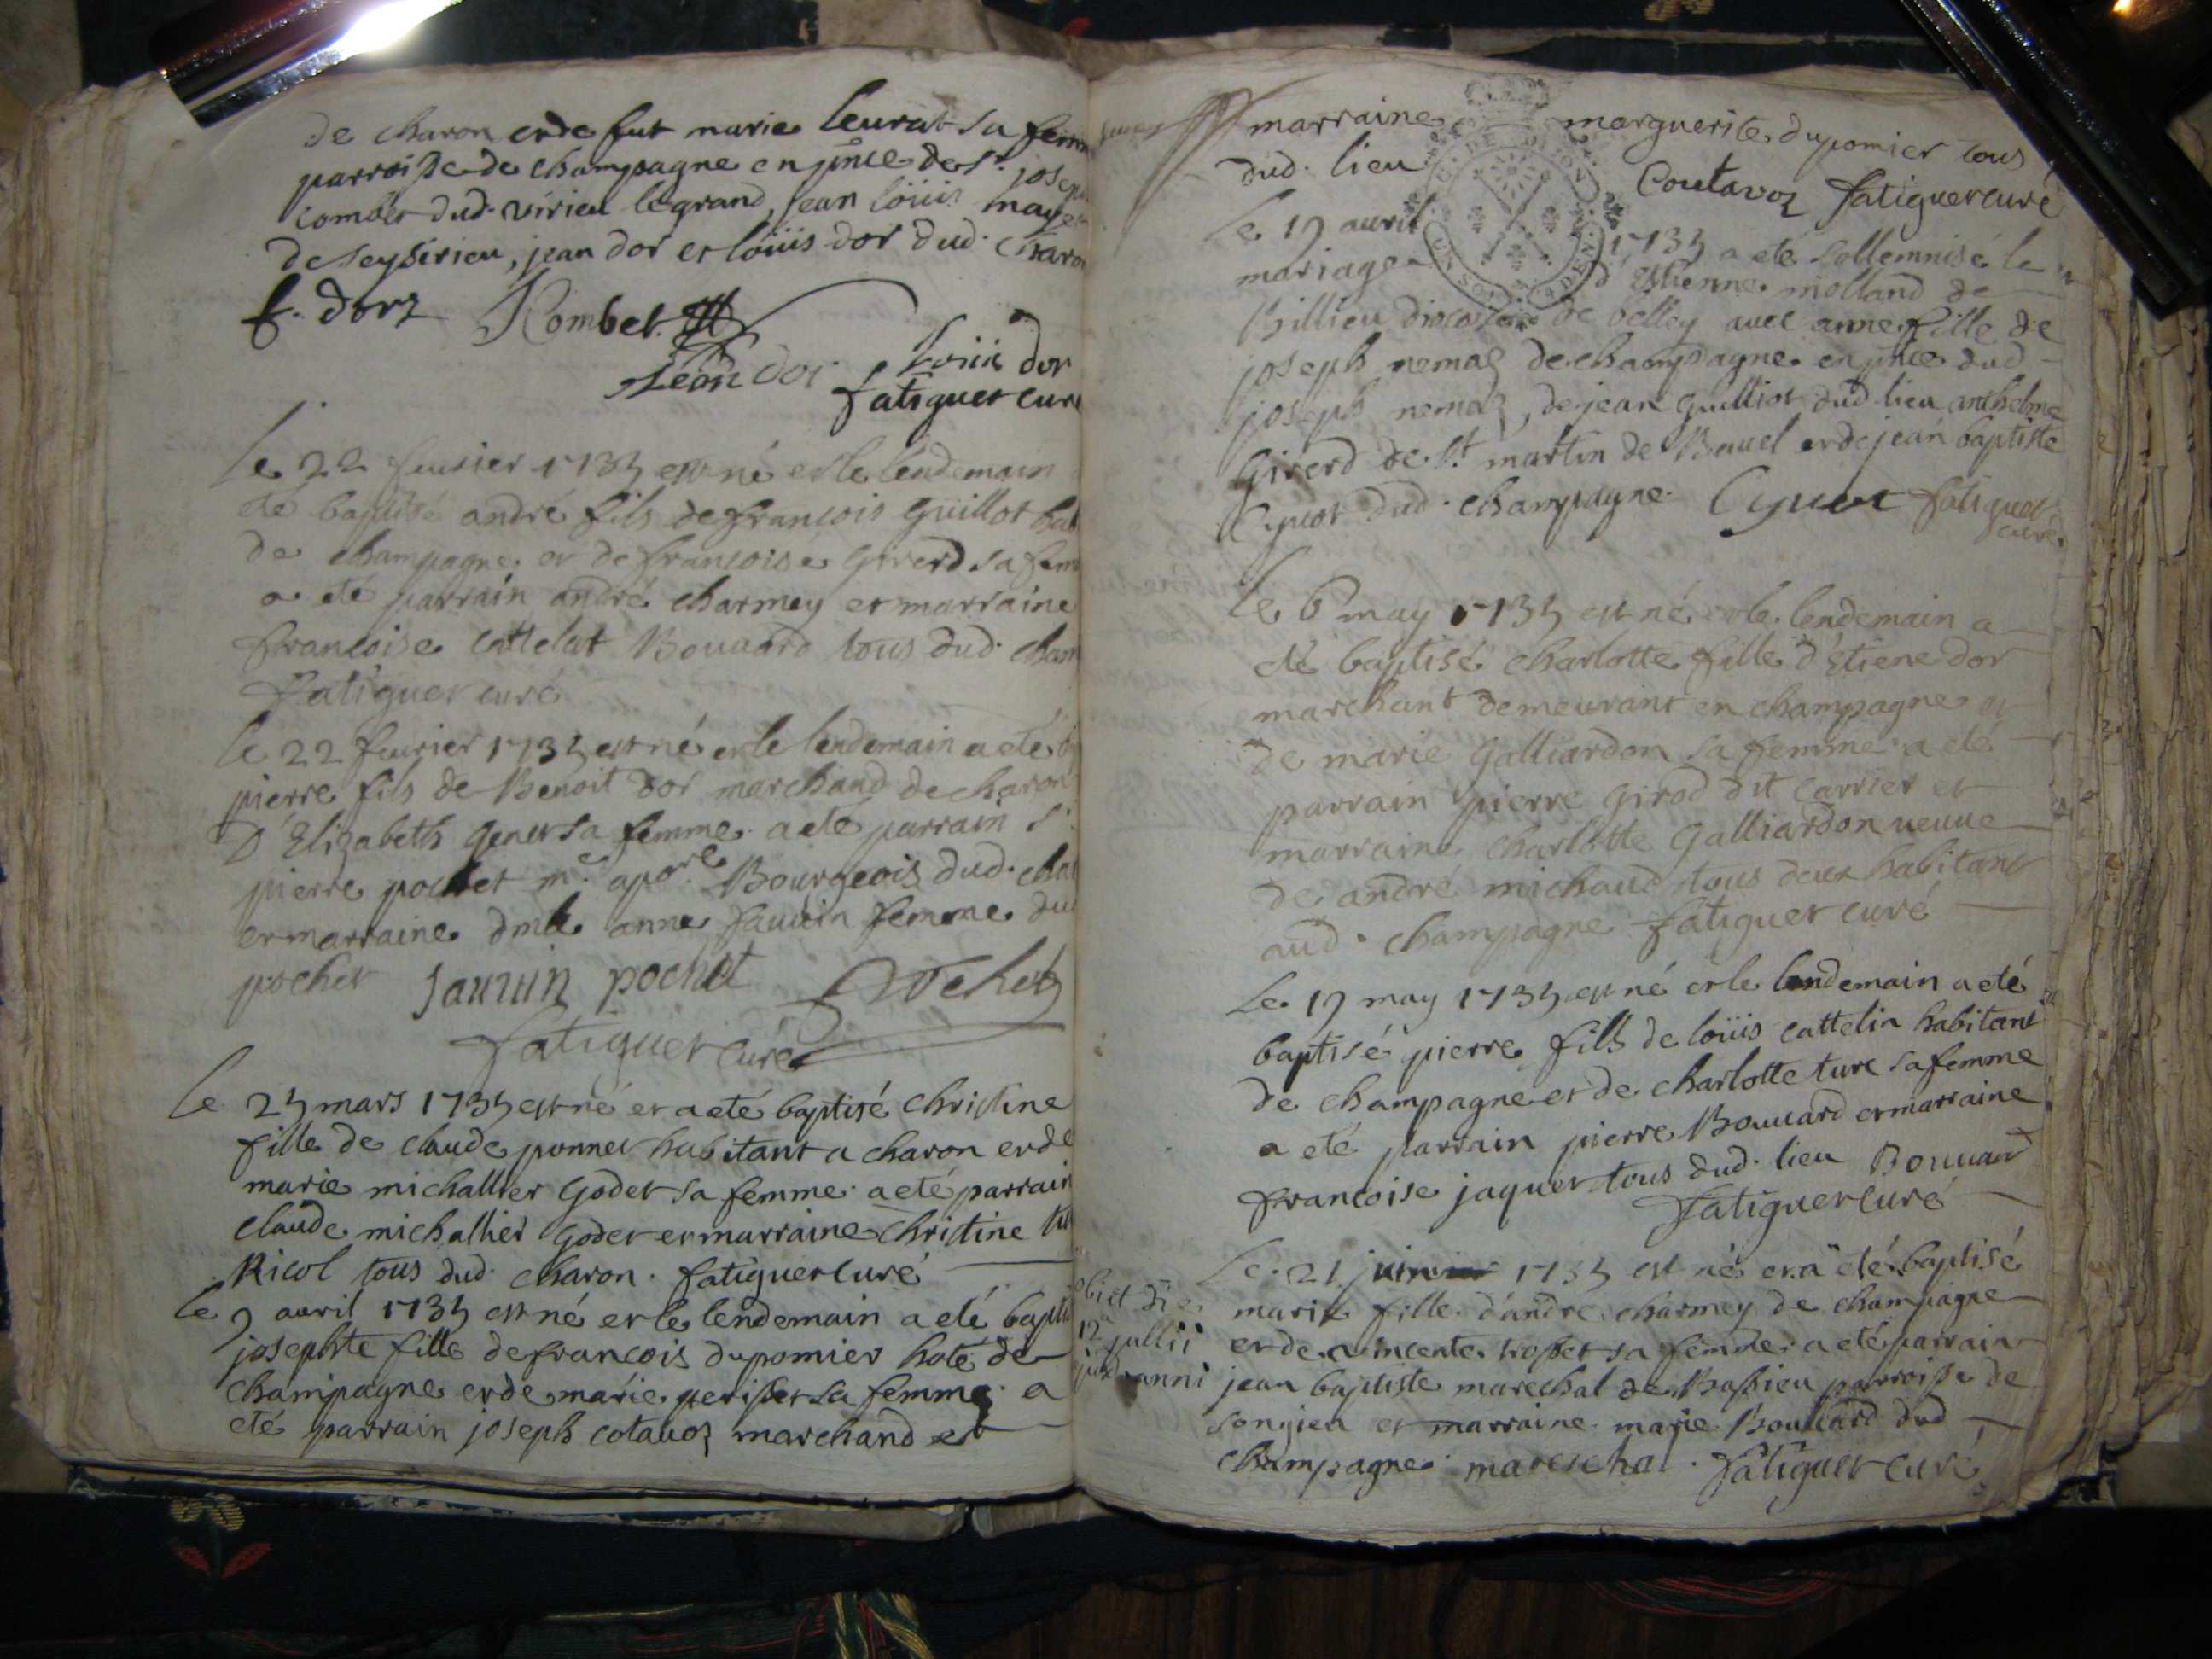 de charon et de fut marie leurat sa femm
parroisse de champagne en pnce de sr. josep
comber dud. virieu legrand, jean loüis may
de seysirieu, jean dor et loüis dor dud. charon
f. dorz Rombet
jean dor Loüis dor
fatiguet curé
le 22 feurier 1735 est né et le lendemain
eté baptisé andré fils de francois guillot hab
de champagne et de francoise girerd sa fem
a eté parrain andré charmey et marraine
francoise cattelat Bouuard tous dud. cham
fatiguet curé
le 22 feurier 1735 est né et le lendemain a eté b
pierre fils de Benoit dor marchand de charon
D'Elizabeth genet sa femme. a eté parrain sr.
pierre pochet me. apore. Bourgeois dud. cha
et marraine dmlle anne jauuin femme dud
pochet jauuin pochet Pochet
fatiguet curé
le 25 mars 1735 est né et a eté baptisé christine
fille de claude ponnet habitant a charon et de
marie michallier godet sa femme. a eté parrain
claude michallier godet et marraine christine
Ricol tous dud. charon. fatiguet curé
le 9 auril 1735 est né et le lendemain a eté baptis
josephte fille de francois dupomier hote de
champagne et de marie perisset sa femme. a
eté parrain joseph cotauoz marchand et
marraine marguerite dupomier tous
dud. lieu Coutavoz fatiguet curé
le 19 auril 1735 a eté sollemnisé le
mariage d'Estienne molland de
Billieu diocese de belley auec anne fille de
joseph nemoz de champagne en pnce dud
joseph nemoz, de jean guilliot dud. lieu anthelme
Girerd de St martin de Bauel et de jean baptiste
Cyuot dud. champagne. Cyuot fatiguet
curé
le 6 may 1735 est né et le lendemain a
eté baptisé charlotte fille d'Etiene dor
marchant demeurant en champagne et
de marie galliardon sa femme a eté
parrain pierre girod dit carrier et
marraine charlotte galliardon ueuue
de andré michaud tous deux habitant
aud. champagne fatiguet curé
Le 19 may 1735 est né et le lendemain a eté
baptisé pierre fils de loüis cattelin habitant
de champagne et de charlotte ture sa femme
a eté parrain pierre Bouuard et marraine
francoise jaquet tous dud. lieu Bouuard
fatiguet curé
obiit die
12a jullii
ejusd anni
Le 21 juin 1735 est né et a eté baptisé
marie fille d'andré charmey de champagne
et de uincente trosset sa femme a eté parrain
jean baptiste marechal de Bassieu parroisse de
songieu et marraine marie Bouuard dud
champagne mareschal. fatiguet curé